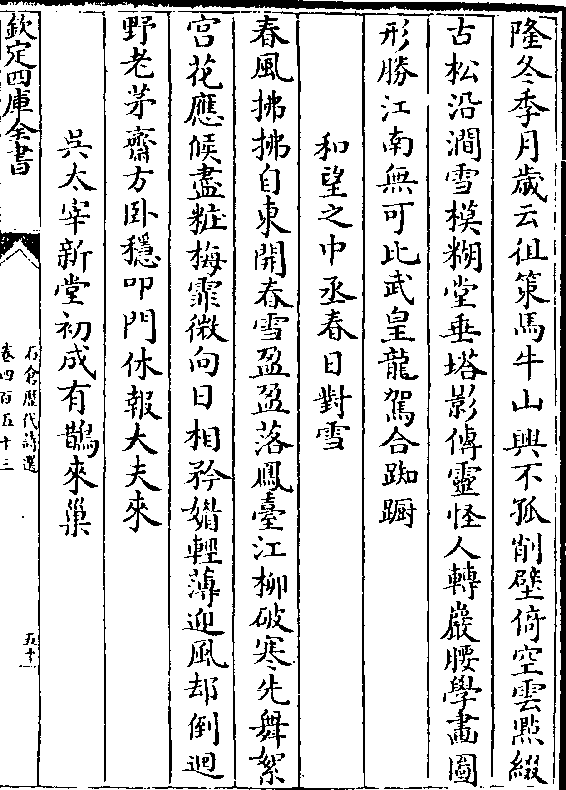 隆冬季月歲云徂策馬牛山興不孤削壁倚空雲㸃綴
古松沿澗雪模糊堂垂塔影傳靈怪人轉巖腰學畫圖
形勝江南無可比武皇龍駕合踟蹰
和望之中丞春日對雪
春風拂拂自東開春雪盈盈落鳳臺江柳破寒先舞絮
宫花應候盡粧梅霏微向日相矜媚輕薄迎風却倒迴
野老茅齋方卧穩叩門休報大夫來
吳太宰新堂初成有鵲來巢
欽定四庫全書
石倉歷代詩選
卷四百五十三
五十一